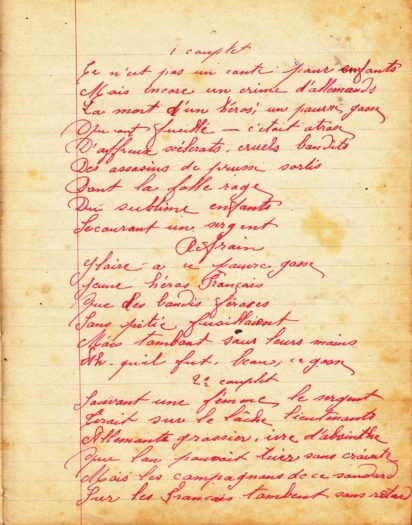 1 couplet
Ce n'est pas un conte pour enfants
Mais encore un crime d'allemands
La mort d'un héros, un pauvre gosse
Qu'ont fusillé – c'était atroce
D'affreux scélérats, cruels bandits
Des assassins de prusse sortis
Dont la folle rage
Du sublime enfants
Secourant un sergent
Refrain
Gloire a ce pauvre gosse
Jeune héros Français
Que des bandis féroses
Sans pitié fusillaient
Mais tombant sous leurs mains
Ah. qu'il fut, beau, ce gosse
2e couplet
Suivant une femme le sergent
Tirait sur le lâche lieutenants
Allemants grossier, ivre d'absinthe
Que l'on pouvait tuer sans crainte
Mais les compagnons de ce soudard
Sur les Français tombent sans retard